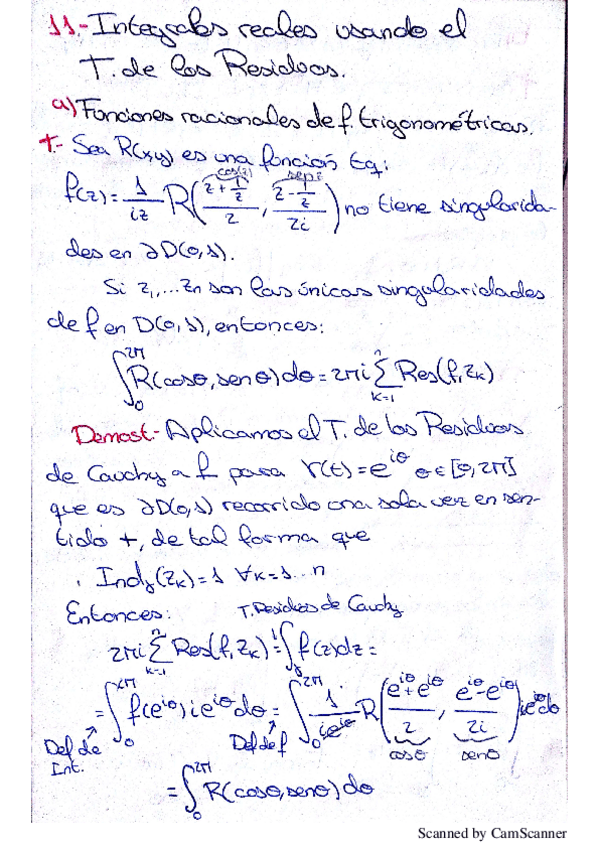 11.- Integrales reales usando el
T. de los Residuos.
a) Funciones racionales de f. trigonométricas.
T.- Sea R(x,y) es una función tq:
f(z) = 1/(iz) R( (z + 1/z)/2 , (z - 1/z)/(2i) ) no tiene singularida-
des en ∂D(0,1).
Si z₁,...zn son las únicas singularidades
de f en D(0,1), entonces:
∫₀^{2π} R(cosθ, senθ)dθ = 2πi Σ_{k=1}^{n} Res(f, z_k)
Demost.- Aplicamos el T. de los Residuos
de Cauchy a f para γ(t) = e^{iθ} θ ∈ [0,2π]
que es ∂D(0,1) recorrido una sola vez en sen-
tido +, de tal forma que
Ind_γ(z_k) = 1 ∀k=1...n
Entonces: T. Residuos de Cauchy
2πi Σ_{k=1}^{n} Res(f, z_k) = ∫_γ f(z)dz =
= ∫₀^{2π} f(e^{iθ}) i e^{iθ} dθ = ∫₀^{2π} 1/(ie^{iθ}) R( (e^{iθ}+e^{iθ})/2 , (e^{iθ}-e^{iθ})/(2i) ) ie^{iθ}dθ
Def de Int. Def de f cosθ senθ
= ∫₀^{2π} R(cosθ, senθ)dθ
Scanned by CamScanner